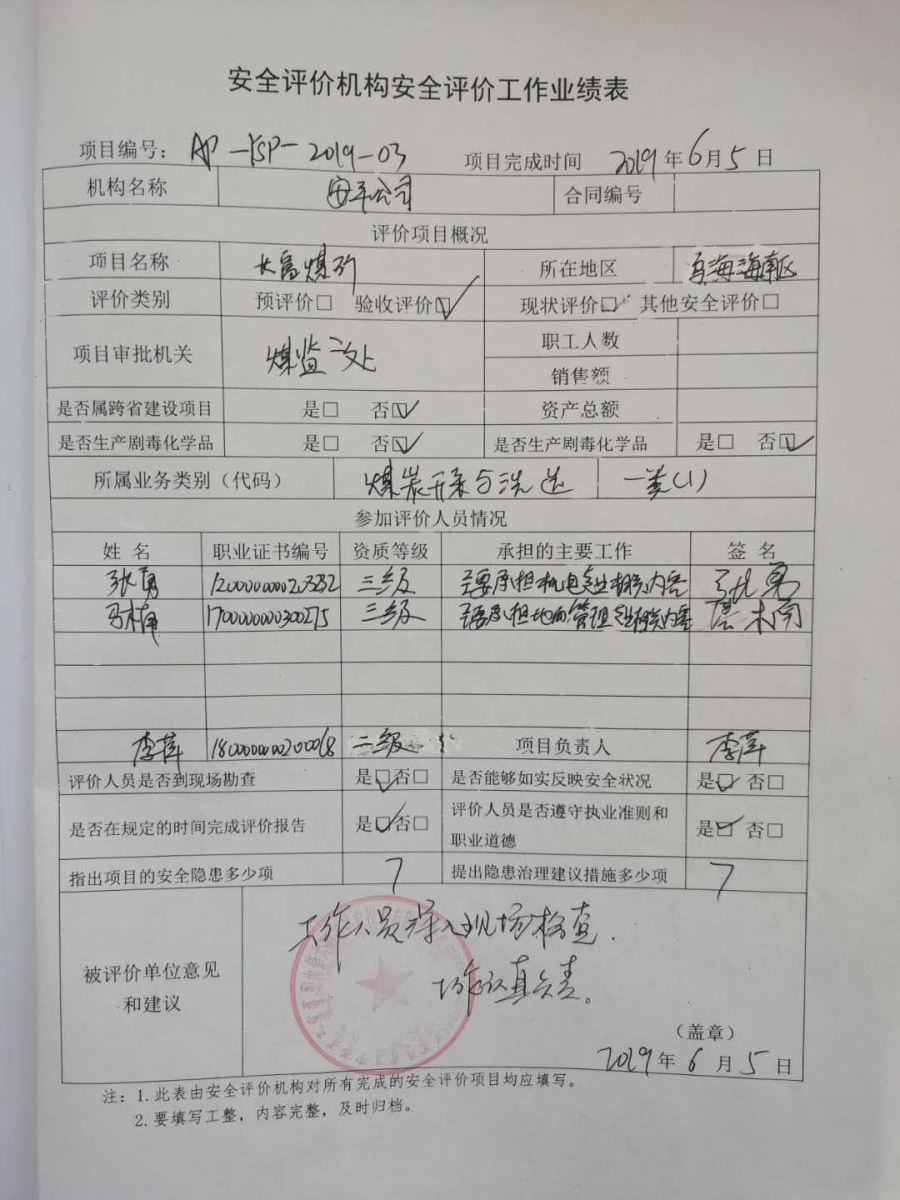 安全评价机构安全评价工作业绩表
项目编号： AP-YSP-2019-03 项目完成时间 2019年6月5日
机构名称 安平公司 合同编号
评价项目概况
项目名称 长富煤矿 所在地区 乌海海南区
评价类别 预评价□ 验收评价☑ 现状评价□ 其他安全评价□
项目审批机关 煤监二处 职工人数
销售额
是否属跨省建设项目 是□ 否☑ 资产总额
是否生产剧毒化学品 是□ 否☑ 是否生产剧毒化学品 是□ 否☑
所属业务类别（代码） 煤炭开采与洗选 一类(1)
参加评价人员情况
姓名 职业证书编号 资质等级 承担的主要工作 签名
张勇 三级 主要承担机电专业相关内容 张勇
三级 主要承担地面管理 相关内容
李萍 二级 项目负责人 李萍
评价人员是否到现场勘查 是☑否□ 是否能够如实反映安全状况 是☑ 否□
是否在规定的时间完成评价报告 是☑否□ 评价人员是否遵守执业准则和
职业道德 是☑ 否□
指出项目的安全隐患多少项 7 提出隐患治理建议措施多少项 7
工作人员深入现场检查.
被评价单位意见
和建议
工作认真负责。
（盖章）
2019年6月5日
注：1. 此表由安全评价机构对所有完成的安全评价项目均应填写。
2. 要填写工整，内容完整，及时归档。